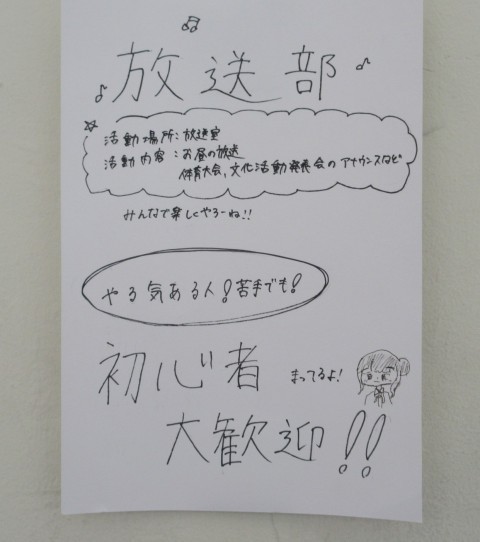 放送部
活動場所:放送室
活動内容:お昼の放送
体育大会、文化活動発表会のアナウンスなど
みんなで楽しくやろーね!!
やる気ある人!苦手でも!
初心者
まってるよ!
大歓迎!!